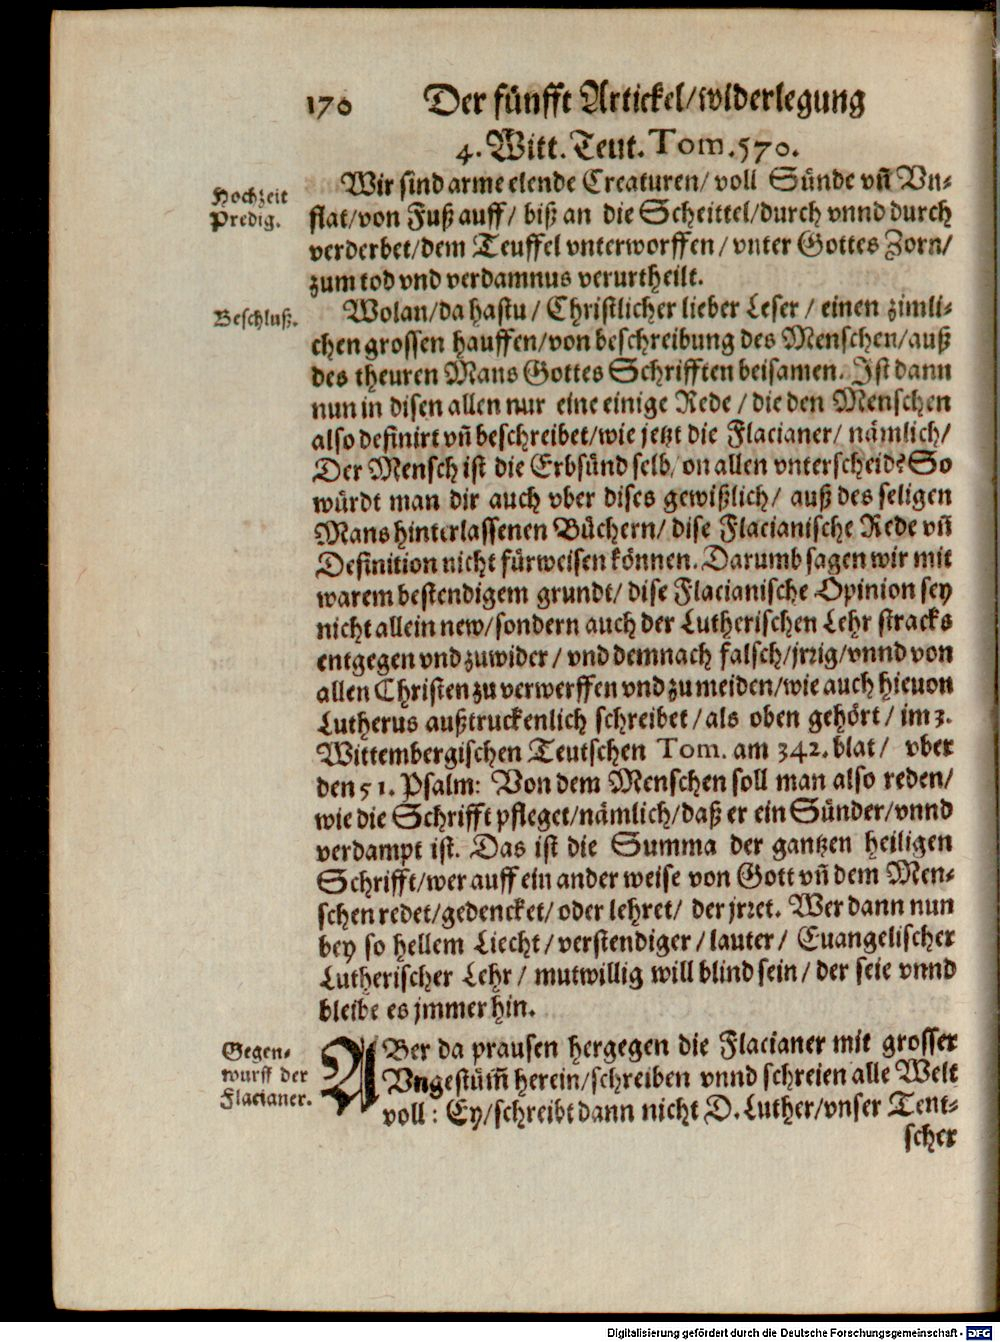 170 Der fünfft Artickel/widerlegung
4. Witt. Teut. Tom. 570.
Hochzeit
Predig.
Wir sind arme elende Creaturen/ voll Sünde vñ Vn-
flat/von Fuß auff/ biß an die Scheittel/durch vnnd durch
verderbet/dem Teuffel vnterworffen/ vnter Gottes Zorn/
zum tod vnd verdamnus verurtheilt.
Beschluß.
Wolan/da hastu/ Christlicher lieber Leser / einen zimli-
chen grossen hauffen/von beschreibung des Menschen/auß
des theuren Mans Gottes Schrifften beisamen. Ist dann
nun in disen allen nur eine einige Rede / die den Menschen
also definirt vñ beschreibet/wie jetzt die Flacianer/ nämlich/
Der Mensch ist die Erbsünd selb/ on allen vnterscheid? So
würdt man dir auch vber dises gewißlich/ auß des seligen
Mans hinterlassenen Büchern/ dise Flacianische Rede vñ
Definition nicht fürweisen können. Darumb sagen wir mit
warem bestendigem grundt/ dise Flacianische Opinion sey
nicht allein new/sondern auch der Lutherischen Lehr stracks
entgegen vnd zuwider / vnd demnach falsch/jrrig/vnnd von
allen Christen zu verwerffen vnd zu meiden/wie auch hieuon
Lutherus außtruckenlich schreibet/als oben gehört/ im 3.
Wittembergischen Teutschen Tom. am 342. blat/ vber
den 51. Psalm: Von dem Menschen soll man also reden/
wie die Schrifft pfleget/nämlich/daß er ein Sünder/vnnd
verdampt ist. Das ist die Summa der gantzen heiligen
Schrifft/wer auff ein ander weise von Gott vñ dem Men-
schen redet/gedencket/ oder lehret/ der jrret. Wer dann nun
bey so hellem Liecht/verstendiger/lauter/ Euangelischer
Lutherischer Lehr / mutwillig will blind sein/ der seie vnnd
bleibe es jmmer hin.
Gegen-
wurff der
Flacianer.
ABer da prausen hergegen die Flacianer mit grosser
Vngestüm̃ herein/schreiben vnnd schreien alle Welt
voll: Ey/schreibt dann nicht D. Luther/vnser Teut-
scher
Digitalisierung gefördert durch die Deutsche Forschungsgemeinschaft - DFG